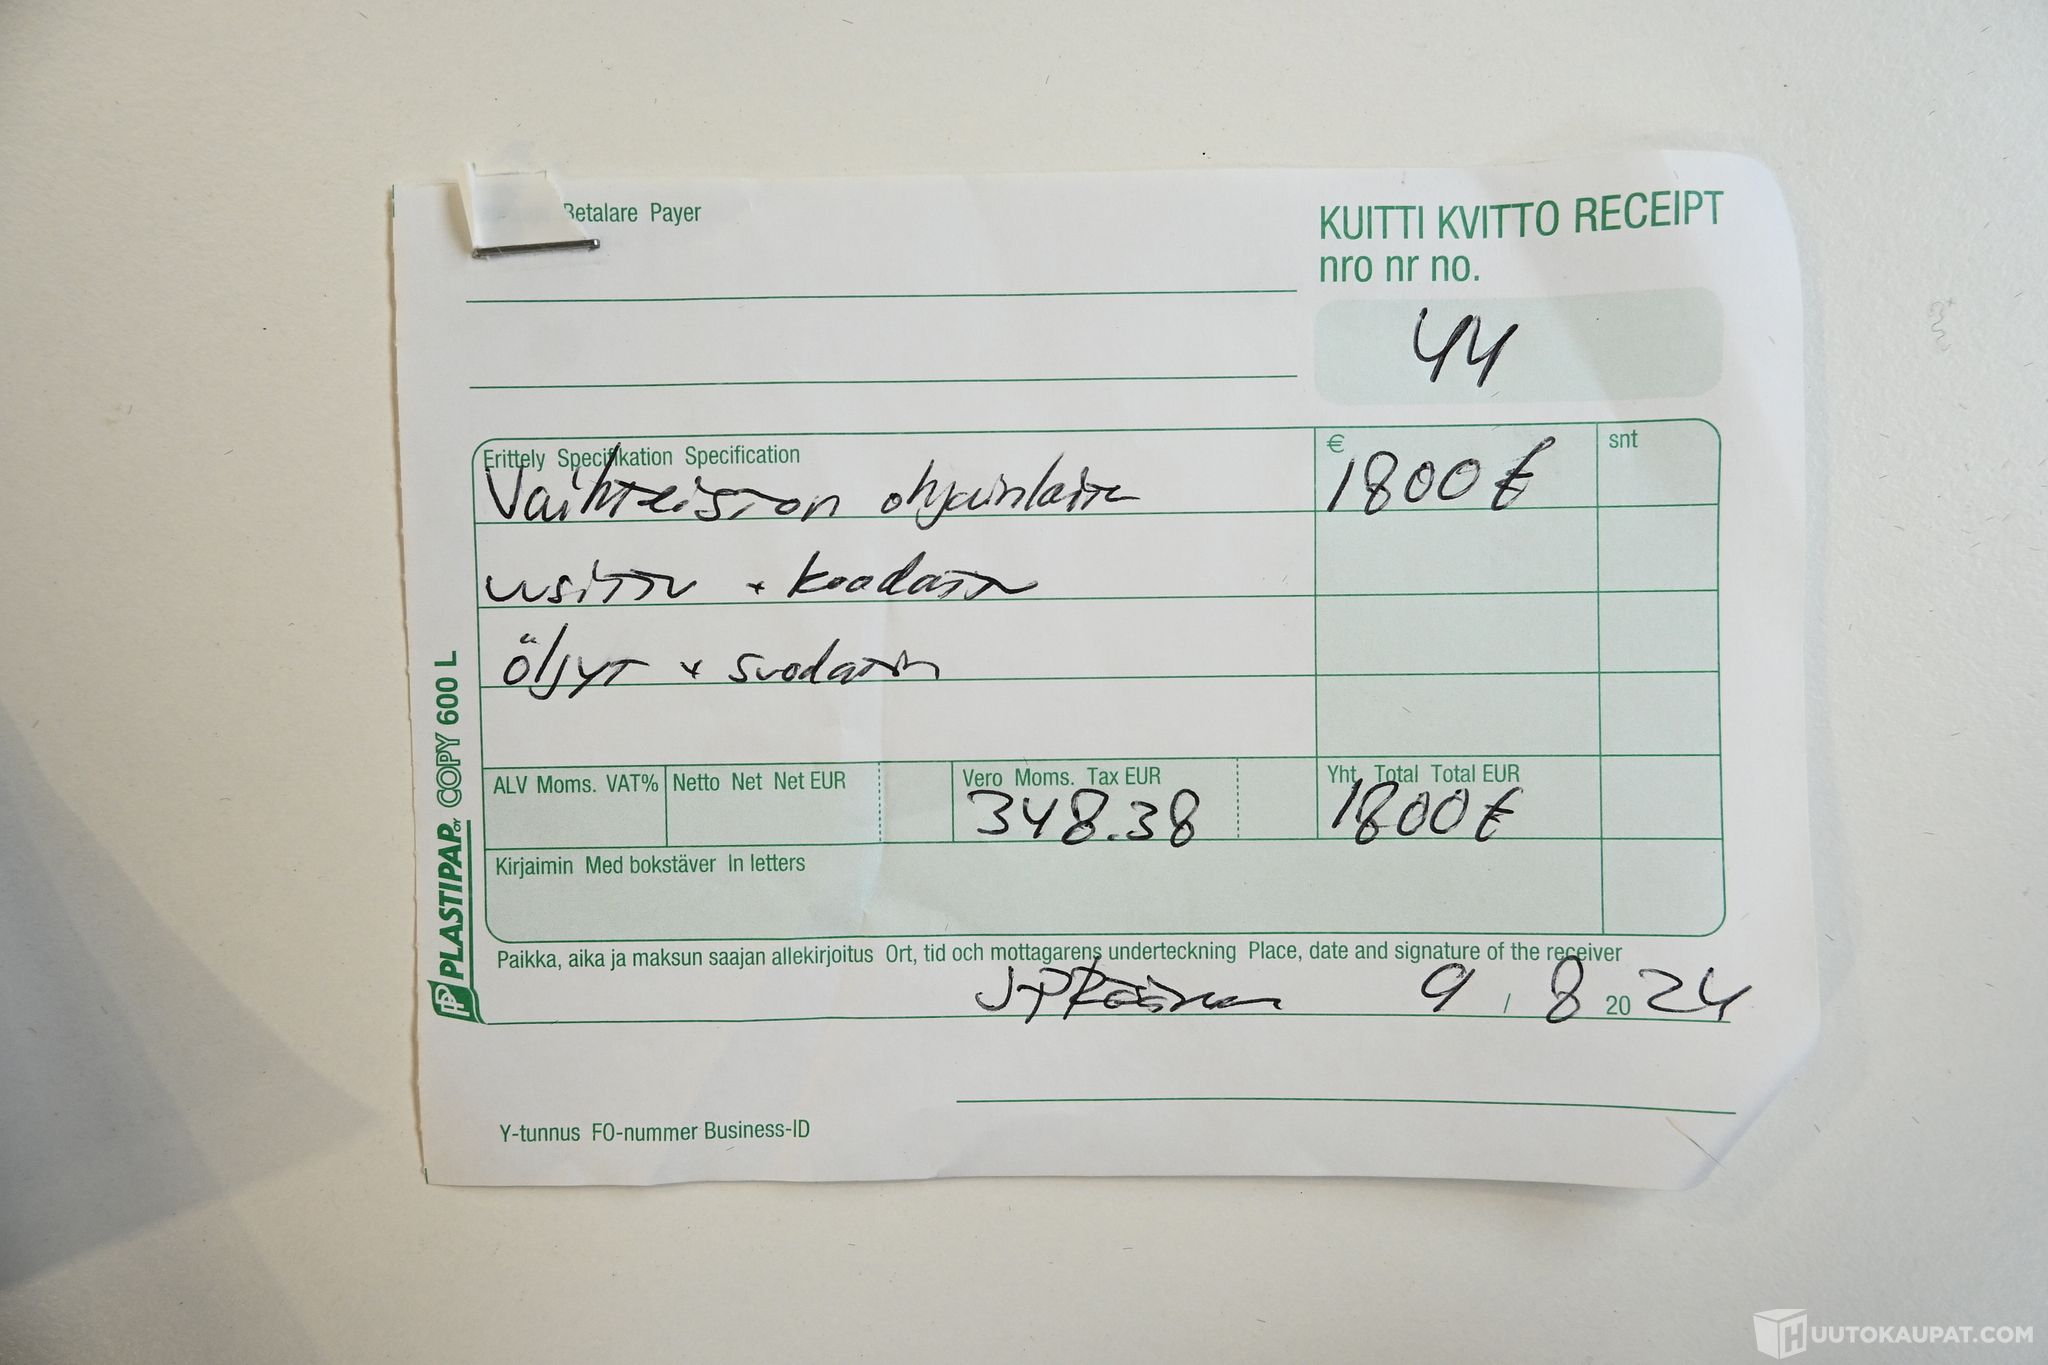 Betalare Payer
KUITTI KVITTO RECEIPT
nro nr no.
44
Erittely Specifikation Specification
€
snt
Vaihteiston ohjainlaite
1800 €
uusittu + koodattu
öljyt + suodatin
ALV Moms. VAT%
Netto Net Net EUR
Vero Moms. Tax EUR
Yht. Total Total EUR
348.38
1800 €
Kirjaimin Med bokstäver In letters
Paikka, aika ja maksun saajan allekirjoitus Ort, tid och mottagarens underteckning Place, date and signature of the receiver
9 / 8 2024
Y-tunnus FO-nummer Business-ID
PLASTIPAP OY COPY 600 L
HUUTOKAUPAT.COM